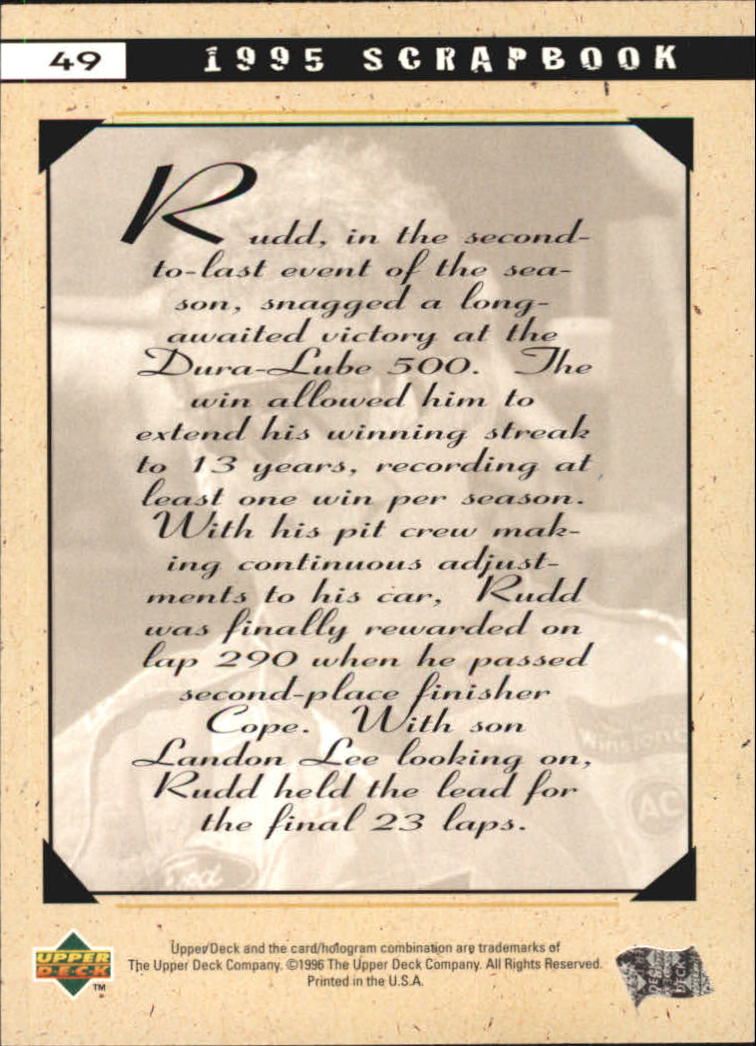 49 1995 SCRAPBOOK
Rudd, in the second-
to-last event of the sea-
son, snagged a long-
awaited victory at the
Dura-Lube 500. The
win allowed him to
extend his winning streak
to 13 years, recording at
least one win per season.
With his pit crew mak-
ing continuous adjust-
ments to his car, Rudd
was finally rewarded on
lap 290 when he passed
second-place finisher
Cope. With son
Landon Lee looking on,
Rudd held the lead for
the final 23 laps.
Winston
AC
Ford
UPPER
DECK
TM
Upper Deck and the card/hologram combination are trademarks of
The Upper Deck Company. ©1996 The Upper Deck Company. All Rights Reserved.
Printed in the U.S.A.